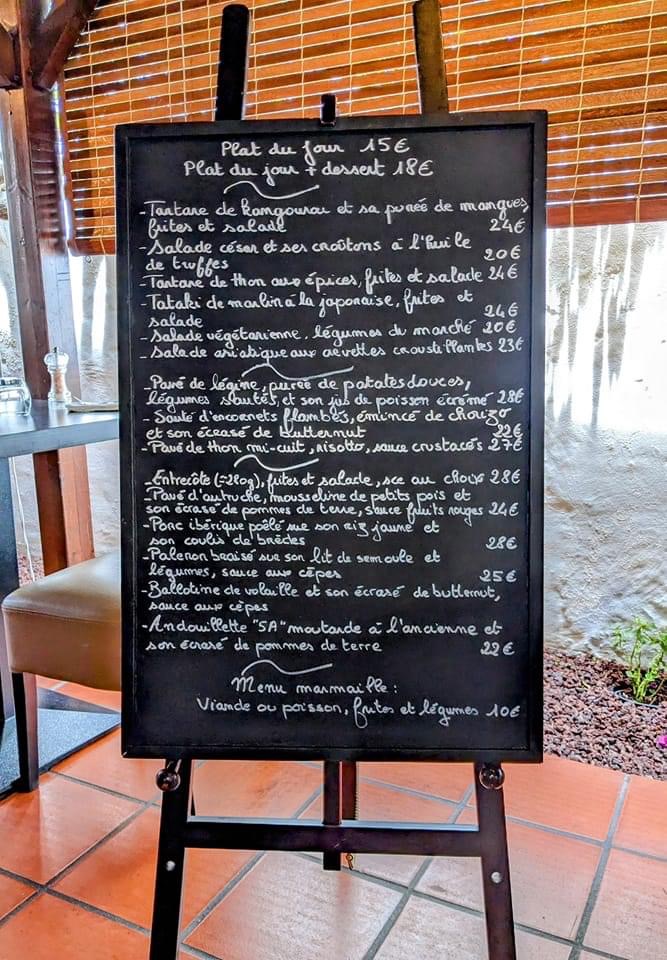 Plat du Jour 15€
Plat du jour + dessert 18€
- Tartare de kangourou et sa purée de mangues,
frites et salade 24€
- Salade césar et ses croûtons à l'huile
de truffes 20€
- Tartare de thon aux épices, frites et salade 24€
- Tataki de marlin à la japonaise, frites et
salade 24€
- Salade végétarienne, légumes du marché 20€
- Salade asiatique aux crevettes croustillantes 23€
- Pavé de légine, purée de patates douces,
légumes sautés, et son jus de poisson écrémé 28€
- Sauté d'encornets flambés, émincé de chorizo
et son écrasé de butternut 22€
- Pavé de thon mi-cuit, risotto, sauce crustacés 27€
- Entrecôte (≈280g), frites et salade, sce au choix 28€
- Pavé d'autruche, mousseline de petits pois et
son écrasé de pommes de terre, sauce fruits rouges 24€
- Porc ibérique poêlé sur son riz jaune et
son coulis de brèdes 28€
- Paleron braisé sur son lit de semoule et
légumes, sauce aux cèpes 25€
- Ballotine de volaille et son écrasé de butternut,
sauce aux cèpes
- Andouillette "5A" moutarde à l'ancienne et
son écrasé de pommes de terre 22€
Menu marmaille :
Viande ou poisson, frites et légumes 10€